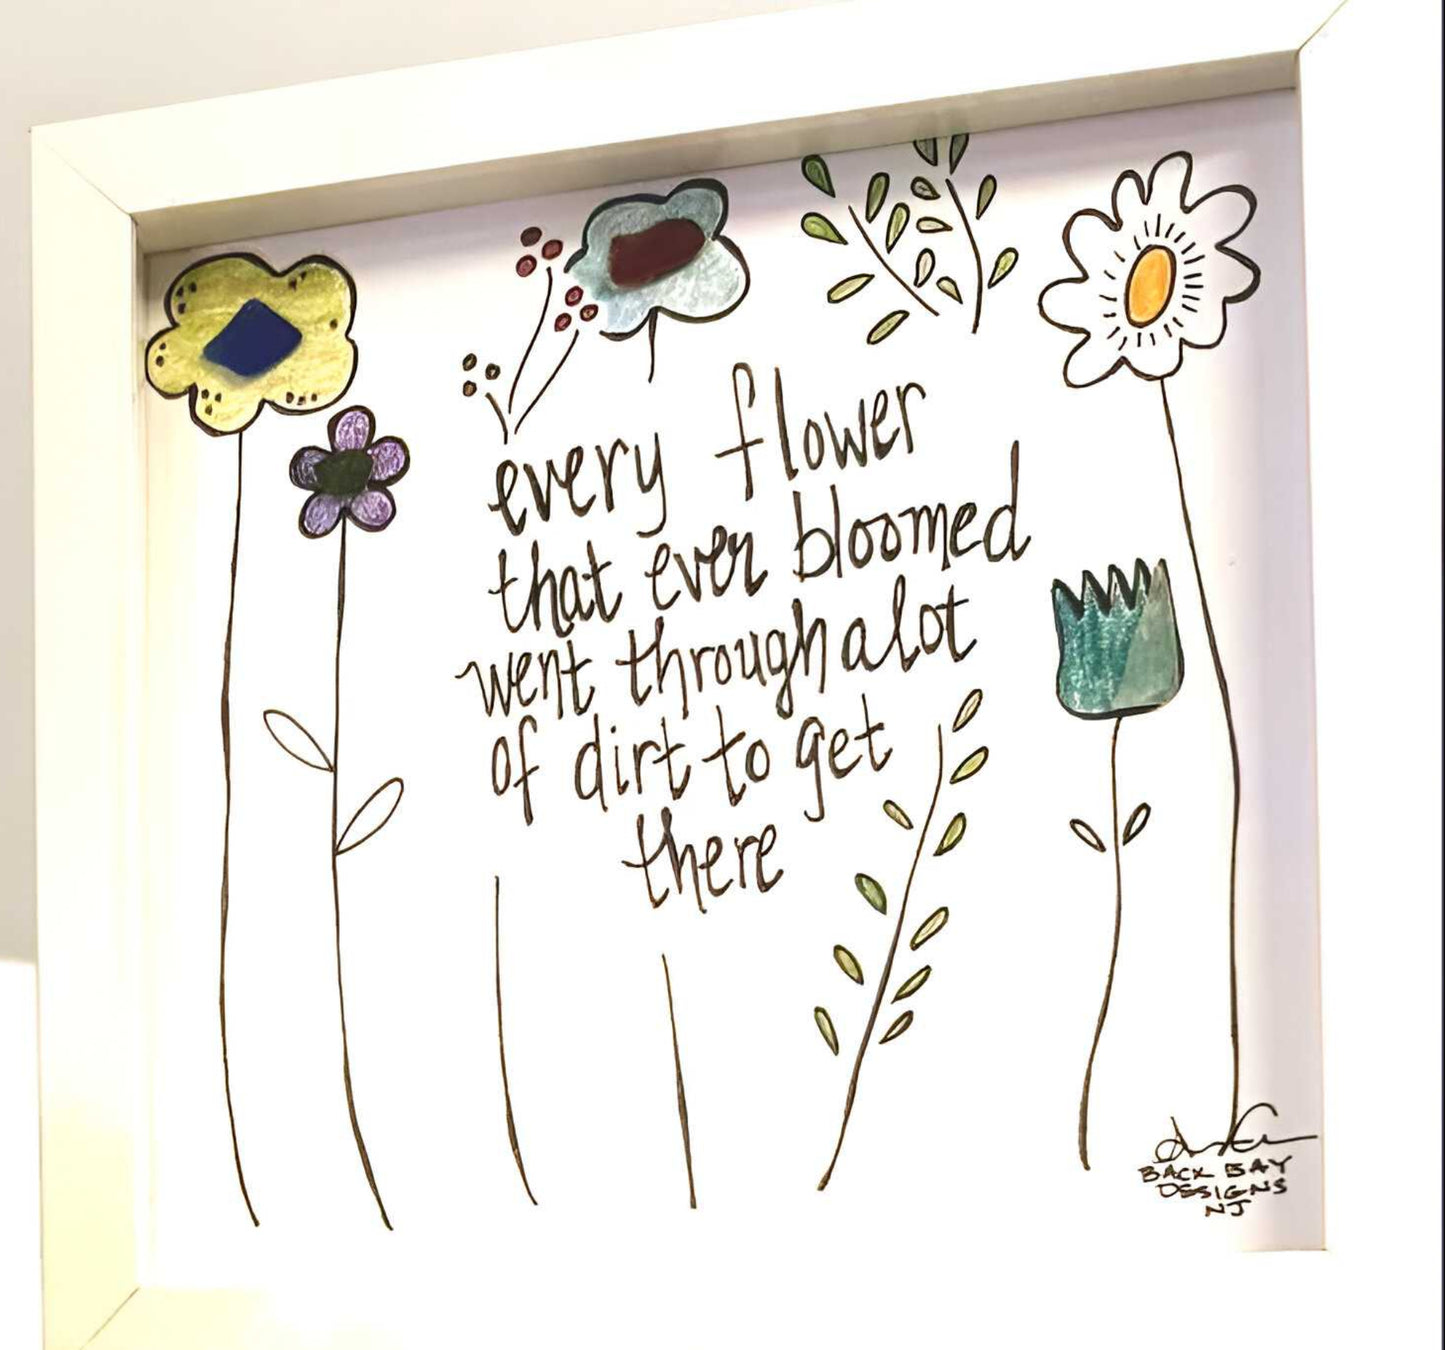 every flower
that ever bloomed
went through alot
of dirt to get
there
BACK BAY
DESIGNS
NJ